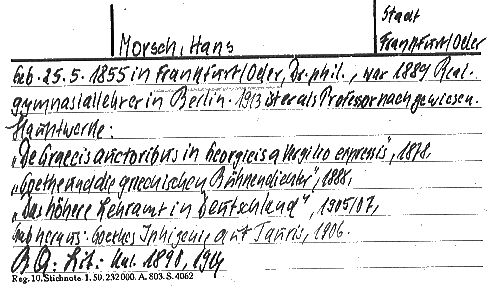 Stadt
Morsch, Hans Frankfurt/Oder
Geb. 25.5.1855 in Frankfurt/Oder, Dr. phil., war 1889 Real-
gymnasiallehrer in Berlin. 1913 ist er als Professor nachgewiesen.
Hauptwerke:
„De Graecis auctoribus in Georgicis a Vergilio expressis", 1878,
„Goethe und die griechischen Bühnendichter", 1888,
„Das höhere Lehramt in Deutschland", 1905/07,
gab heraus: Goethes Iphigenie auf Tauris, 1906.
B.Q.: Lit: Kal. 1890, 1914
Reg. 10. Stichnote 1. 50. 232000. A. 803. S. 4062